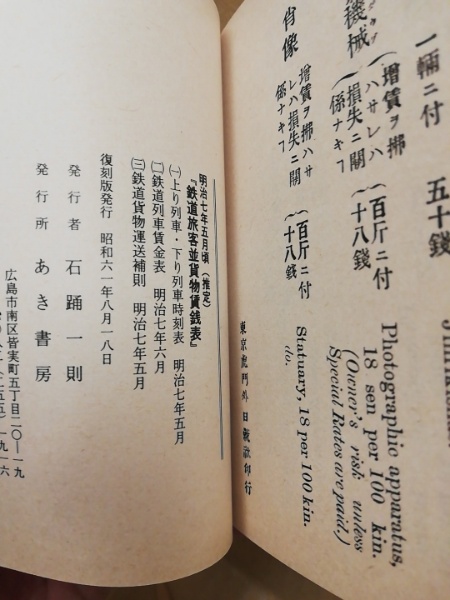 一輛ニ付 五十錢
機械 (增賃ヲ拂ハサレハ損失ニ關係ナキフ) 百斤ニ付十八錢
肖像 (增賃ヲ拂ハサレハ損失ニ關係ナキフ) 百斤ニ付十八錢
Photographic apparatus,
18 sen per 100 kin.
(Owner's risk unless
Special Rates are paid.)
Statuary, 18 per 100 kin.
do.
東京虎門外 日報社印行
明治七年五月頃(推定)
『鉄道旅客並貨物賃銭表』
(一)上り列車・下り列車時刻表 明治七年五月
(二)鉄道列車賃金表 明治七年六月
(三)鉄道貨物運送補則 明治七年五月
復刻版発行 昭和六一年八月一八日
発行者 石踊一則
発行所 あき書房
広島市南区皆実町五丁目二〇―一九